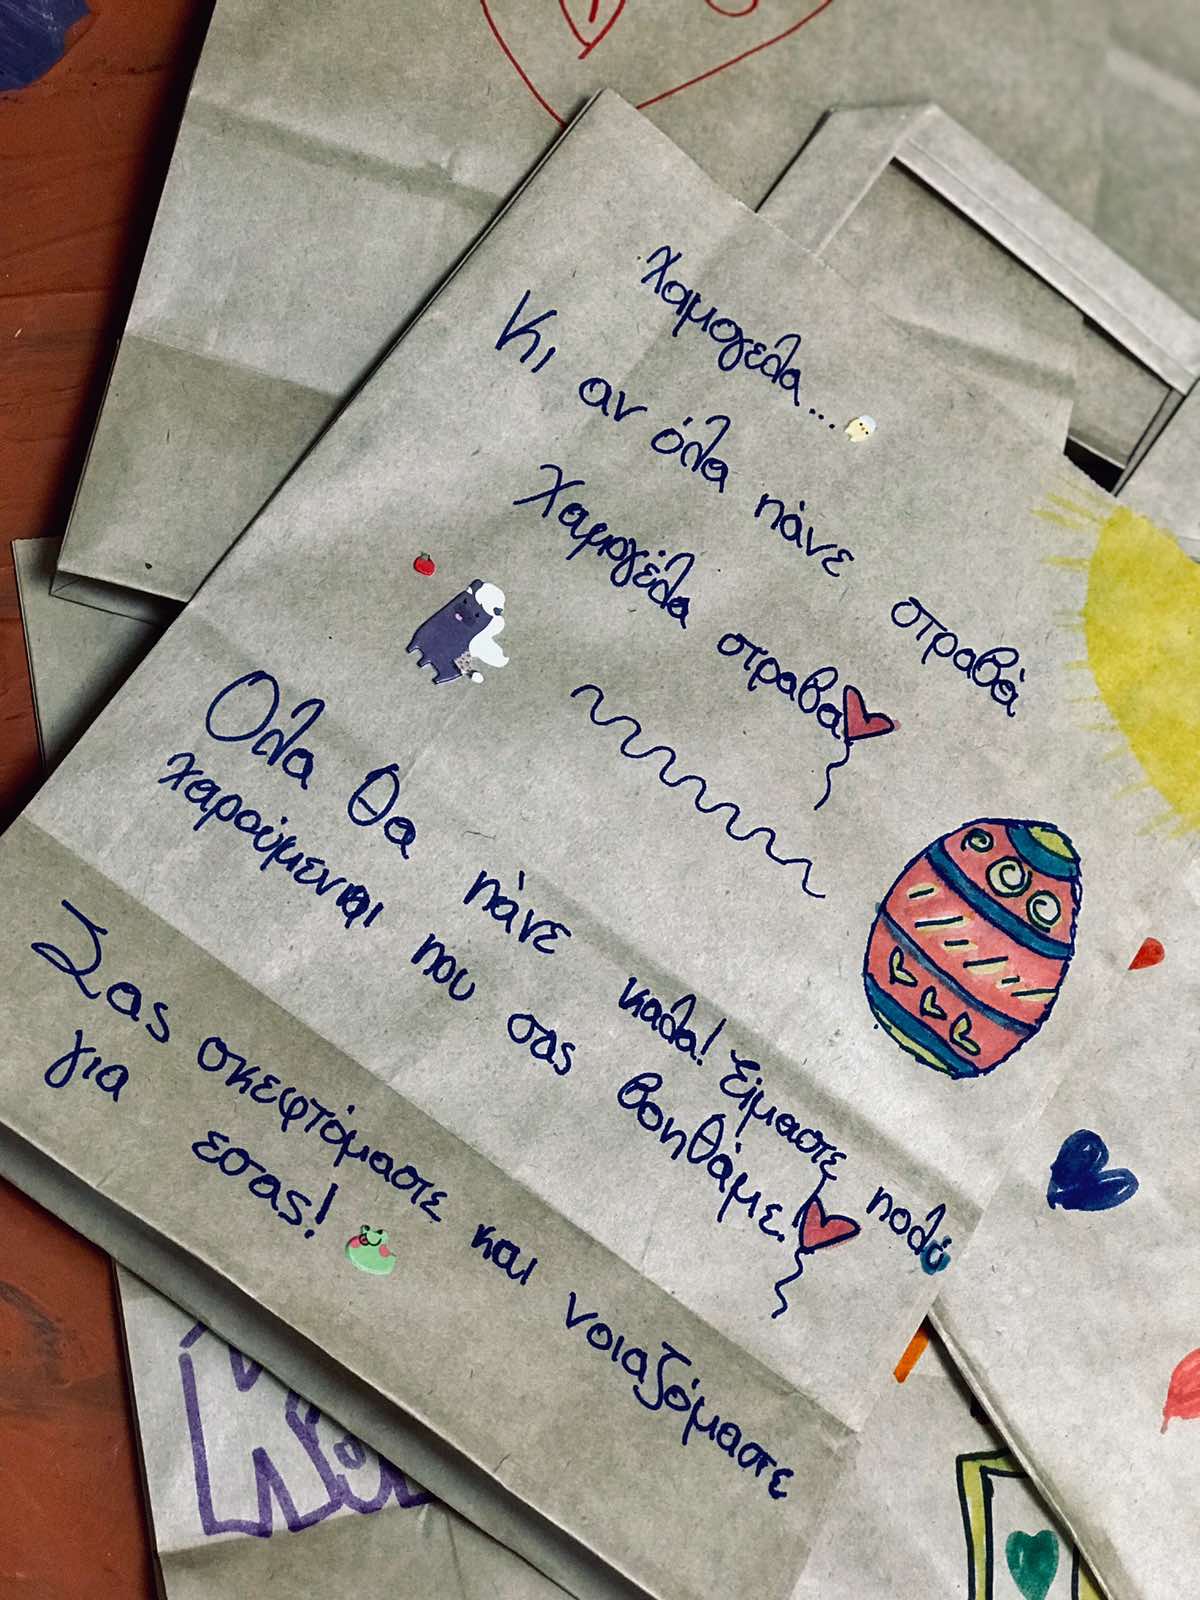 Χαμογελα...
Κι αν όλα πάνε στραβά
Χαμογέλα στραβα!
Ολα θα πάνε καλα! Είμαστε πολύ
χαρούμενοι που σας βοηθάμε!
Σας σκεφτόμαστε και νοιαζόμαστε
για εσας!